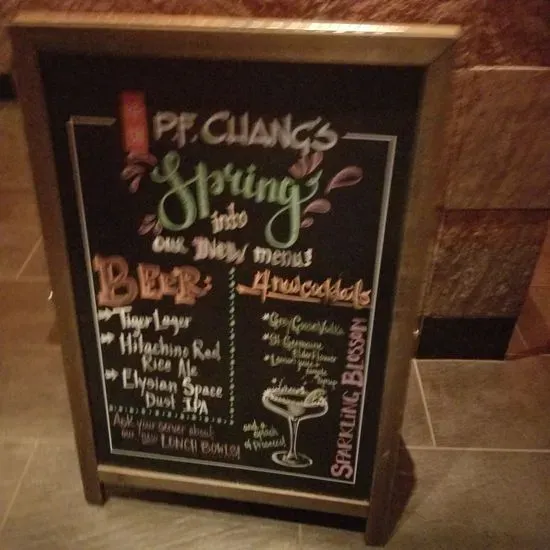 P.F. CHANG'S
Spring
into
our NEW menu!
BEER:
→ Tiger Lager
→ Hitachino Red
Rice Ale
→ Elysian Space
Dust IPA
Ask your server about
our LUNCH BOWLS!
4 new cocktails
*Grey Goose Vodka
*St. Germaine
Elderflower
*Lemon juice +
simple
syrup
and a
splash
of prosecco!
SPARKLING BLOSSOM